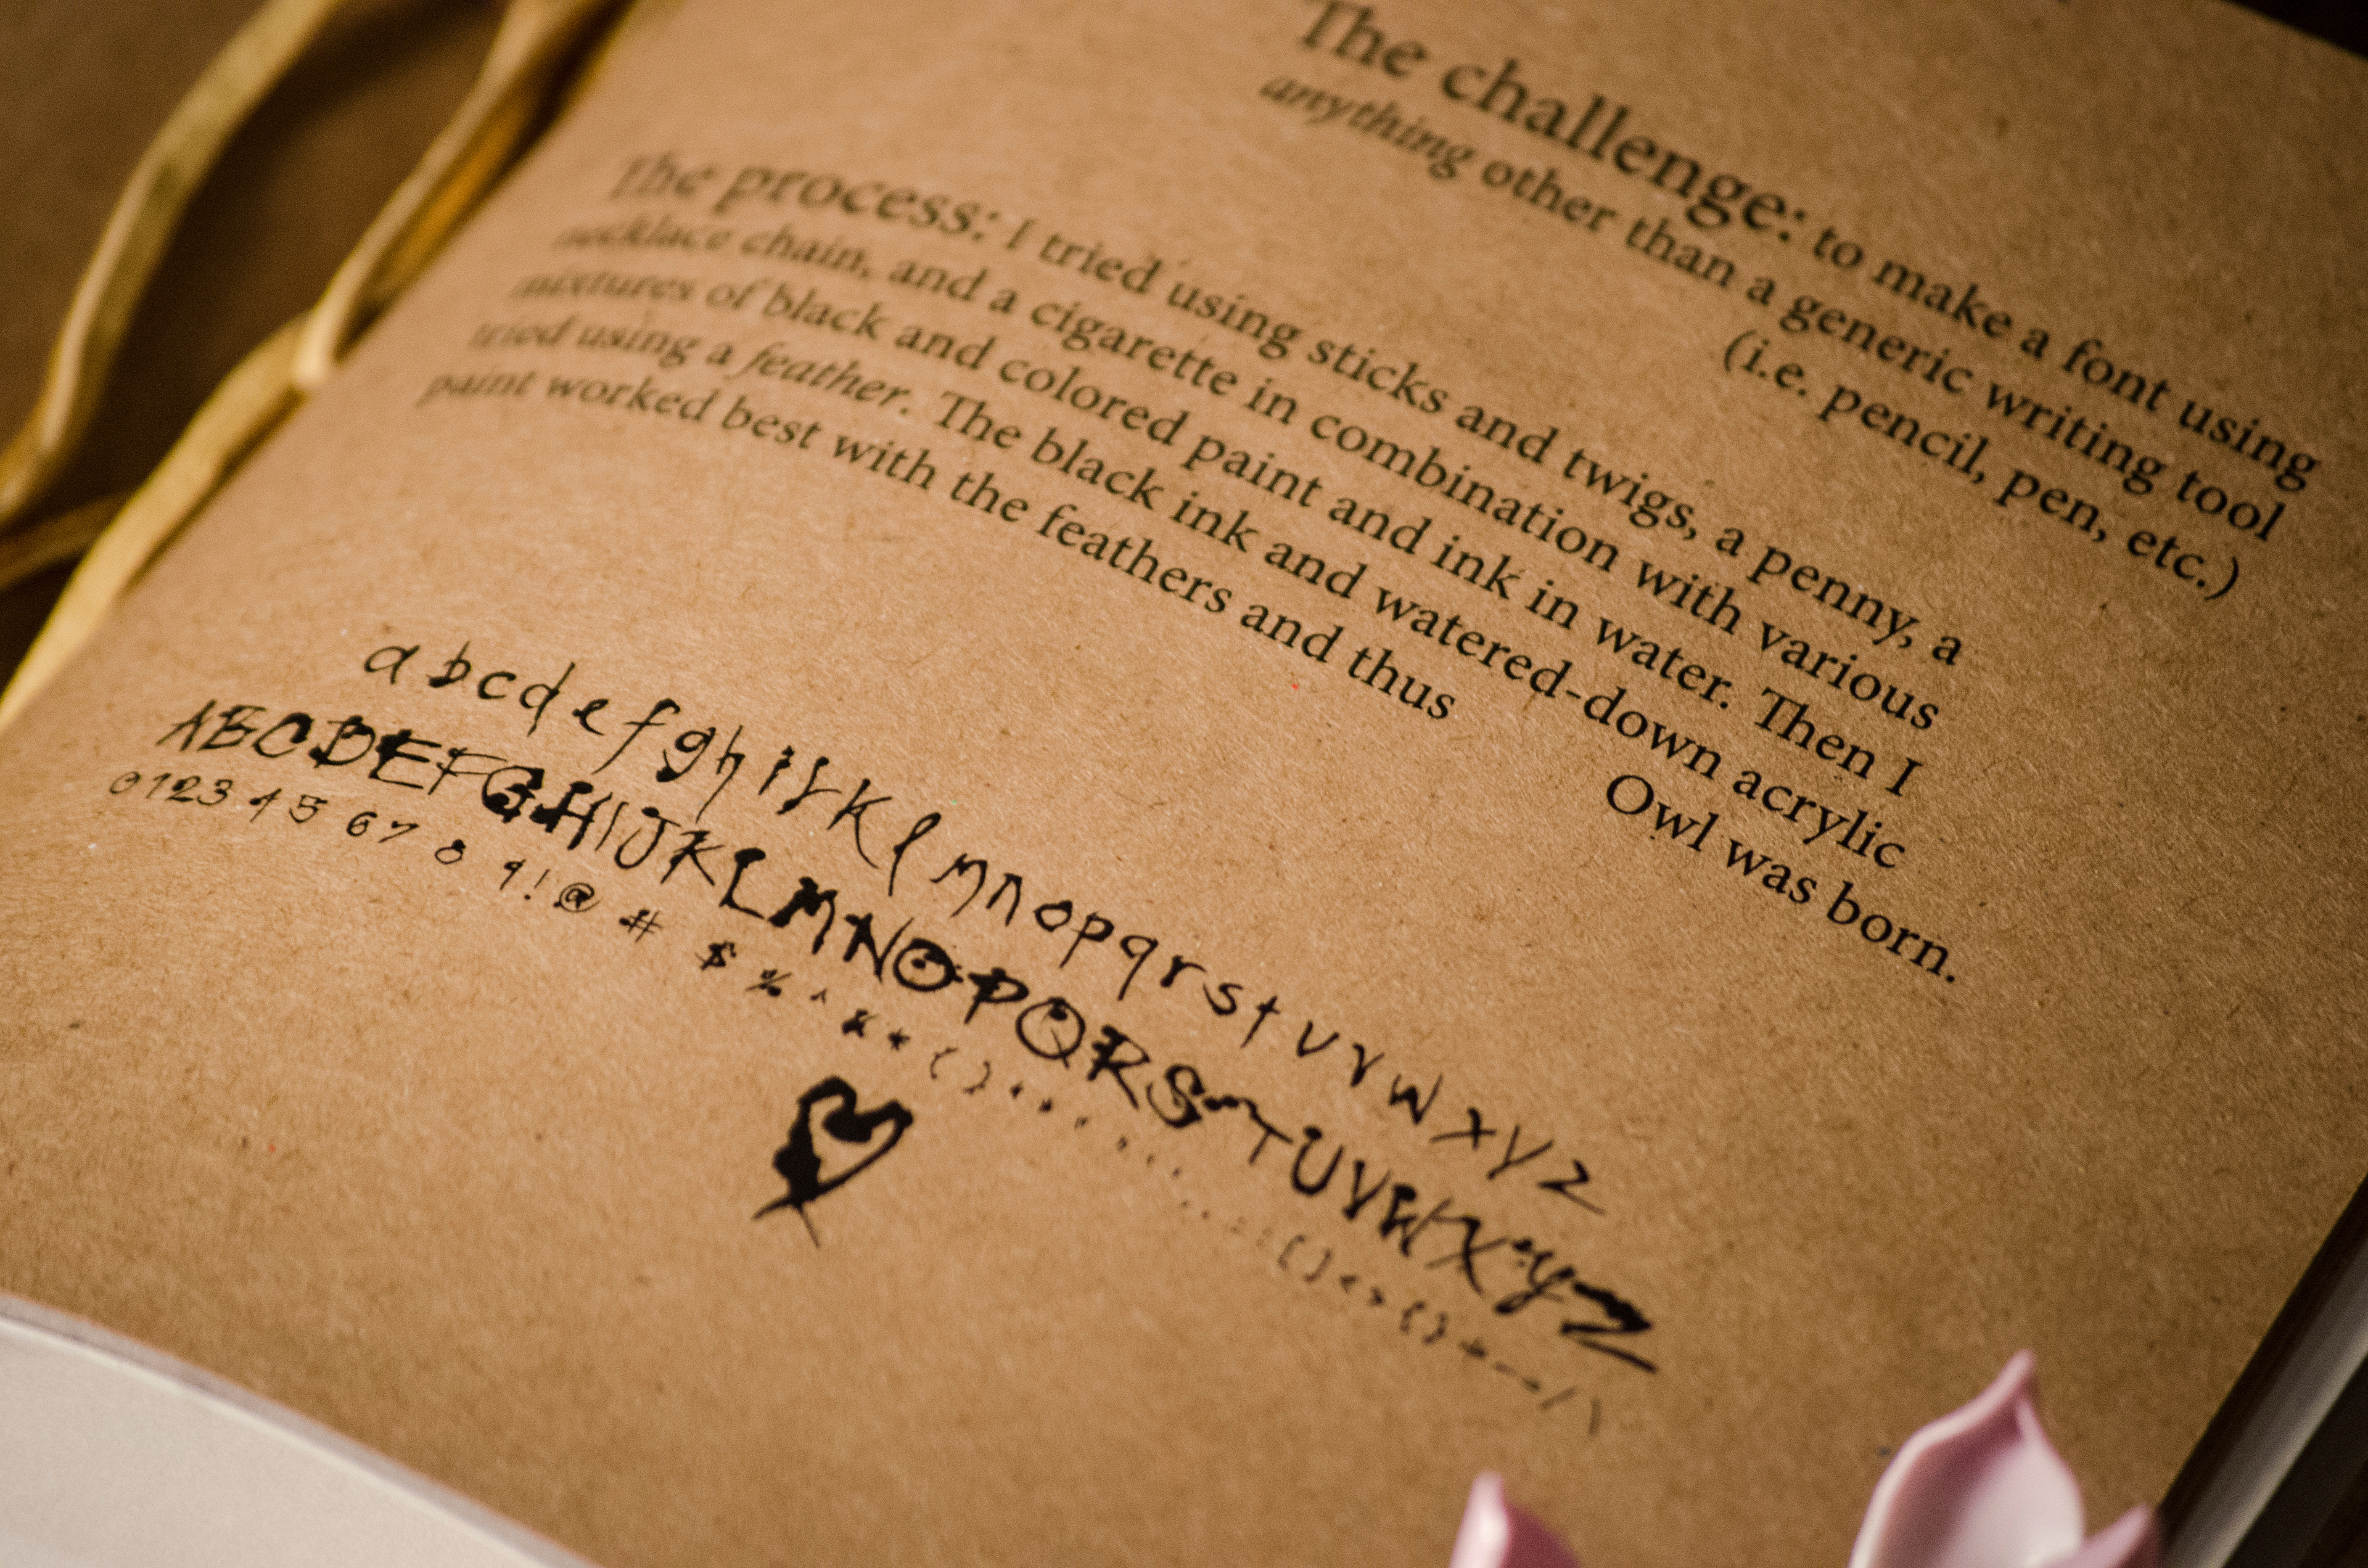 The challenge: to make a font using
anything other than a generic writing tool
(i.e. pencil, pen, etc.)
The process: I tried using sticks and twigs, a penny, a
necklace chain, and a cigarette in combination with various
mixtures of black and colored paint and ink in water. Then I
tried using a feather. The black ink and watered-down acrylic
paint worked best with the feathers and thus
Owl was born.
a b c d e f g h i j k l m n o p q r s t u v w x y z
A B C D E F G H I J K L M N O P Q R S T U V W X Y Z
0 1 2 3 4 5 6 7 8 9 ! @ # $ % ^ & * ( )